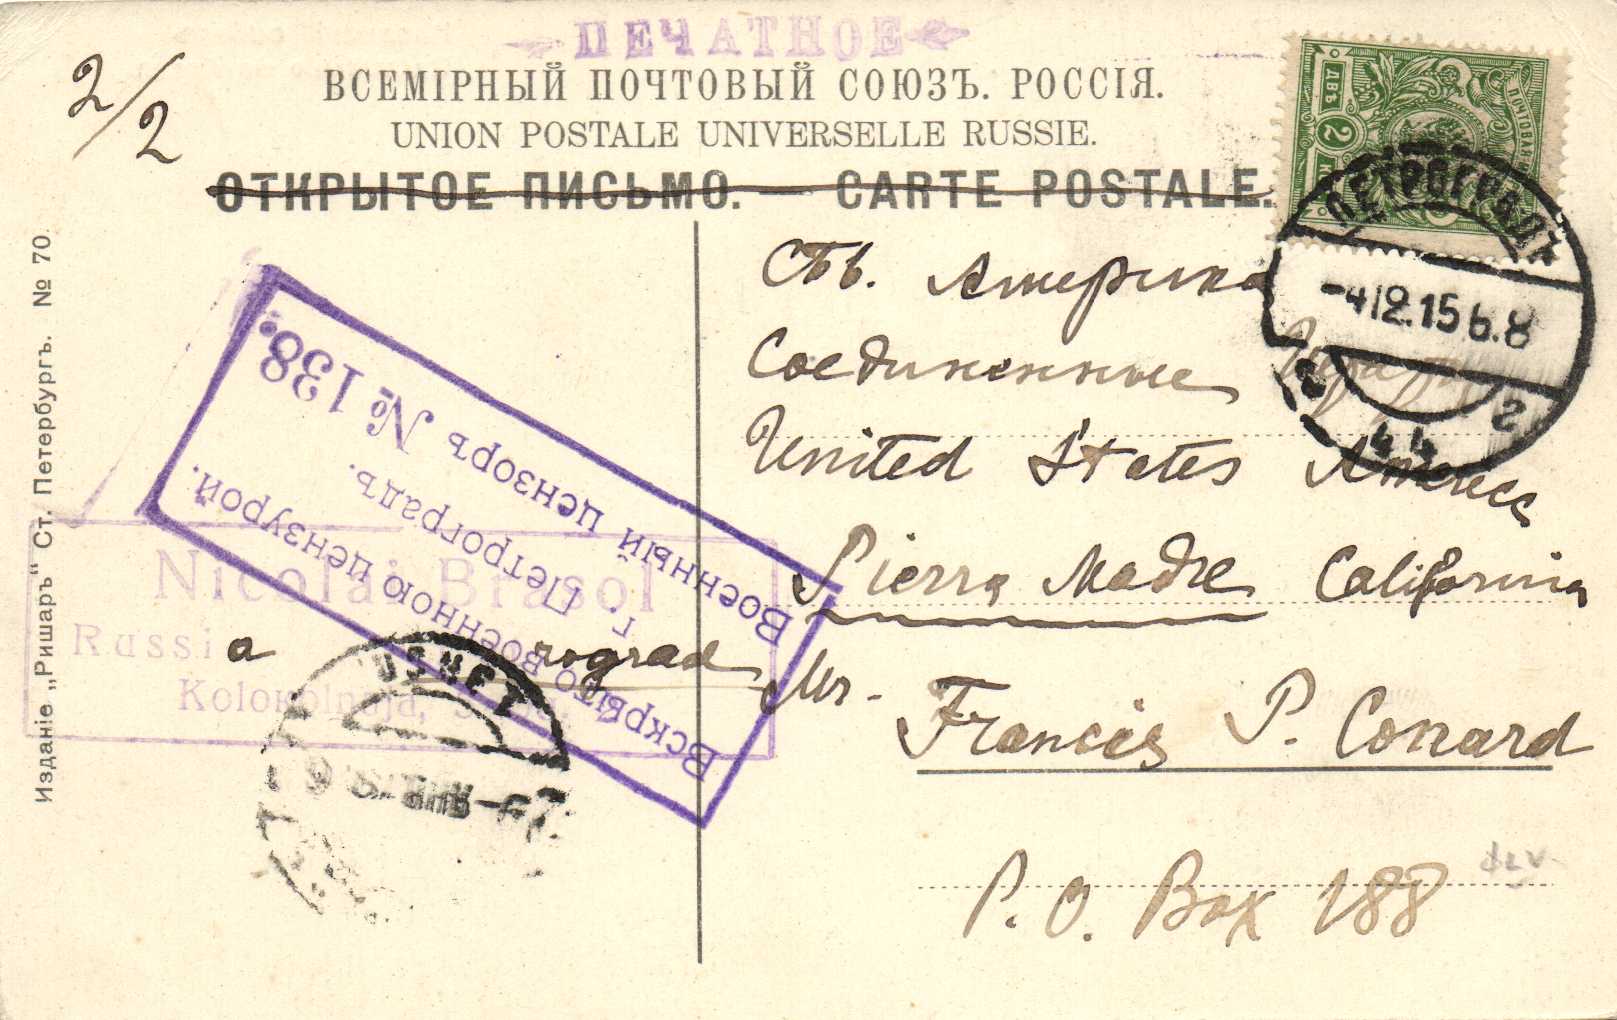 ПЕЧАТНОЕ
2/2
ВСЕМІРНЫЙ ПОЧТОВЫЙ СОЮЗЪ. РОССІЯ.
UNION POSTALE UNIVERSELLE RUSSIE.
ОТКРЫТОЕ ПИСЬМО. — CARTE POSTALE.
ДВѢ 2
ПОЧТОВАЯ
ПЕТРОГРАДЪ
-4 12.15 6.8
2
44
Изданіе „Ришаръ“ Ст. Петербургъ. № 70.
Вскрыто военною цензурой.
г. Петроградъ.
Военный цензоръ № 138.
Nicolai Brasol
Russia rograd
Kolokolnaja,
Сѣв. Америка
Соединенные
United States America
Pierra Madre California
Mr. Francis P. Conrard
P. O. Box 188